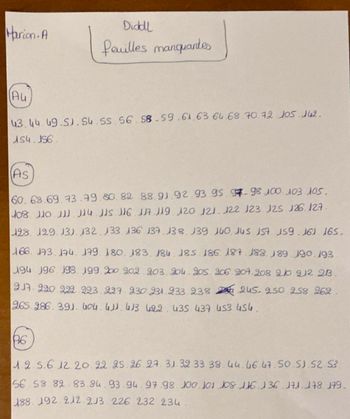 Marion.A
Diddl
feuilles manquantes
A4
43. 44. 49. 51. 54. 55. 56. 58. 59. 61. 63. 64. 68. 70. 72. 105. 142.
154. 156.
A5
60. 68. 69. 73. 79. 80. 82. 88. 91. 92. 93. 95. 97. 98. 100. 103. 105.
108. 110. 111. 114. 115. 116. 117. 119. 120. 121. 122. 123. 125. 126. 127.
128. 129. 131. 132. 133. 136. 137. 138. 139. 140. 145. 157. 159. 161. 165.
166. 173. 174. 179. 180. 183. 184. 185. 186. 187. 188. 189. 190. 193.
194. 196. 198. 199. 200. 202. 203. 204. 205. 206. 207. 208. 210. 212. 213.
217. 220. 222. 223. 227. 230. 231. 233. 238. 245. 250. 258. 262.
265. 286. 391. 404. 411. 413. 422. 435. 437. 453. 454.
A6
1. 2. 5. 6. 12. 20. 22. 25. 26. 27. 31. 32. 33. 38. 44. 46. 47. 50. 51. 52. 53.
56. 58. 82. 83. 84. 93. 94. 97. 98. 100. 101. 108. 116. 136. 171. 178. 179.
188. 192. 212. 213. 226. 232. 234.